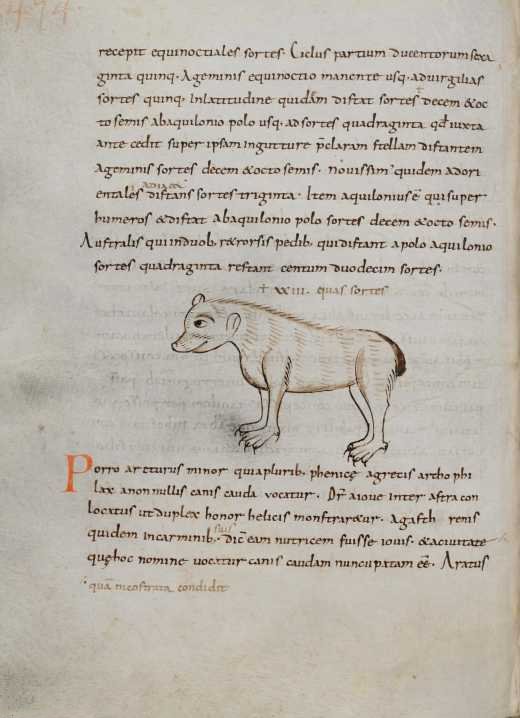 474.
recepit equinoctiales sortes. Ciclus partium ducentorum sexa
ginta quinq. A geminis equinoctio manente usq. ad virgilias
sortes quinq. In latitudine quidam distat sortes decem & oc
to semis ab aquilonio polo usq. ad sortes quadraginta qd iuxta
ante cedit super ipsam in gutture pclaram stellam distantem
a geminis sortes decem & octo semis. novissim quidem ad ori
entales distans sortes triginta. Item aquilonius ē qui super
humeros & distat ab aquilonio polo sortes decem & octo semis.
Australis qui in duob. r&rorsis pedib. qui distant a polo aquilonio
sortes quadraginta restant centum duodecim sortes.
+ xxiii. equas sortes
Porro arcturus minor qui a plurib. phenice agretis artho phi
lax a nonnullis canis cauda vocatur. Dr a iove inter astra con
locatus ut duplex honor helicis monstrar&ur. Agasth renis
suis
quidem in carminib. dic eam nutricem fuisse iovis. & a civitate
que hoc nomine vocatur canis caudam nuncupatam eē. Aratus
quam meostrata condidit